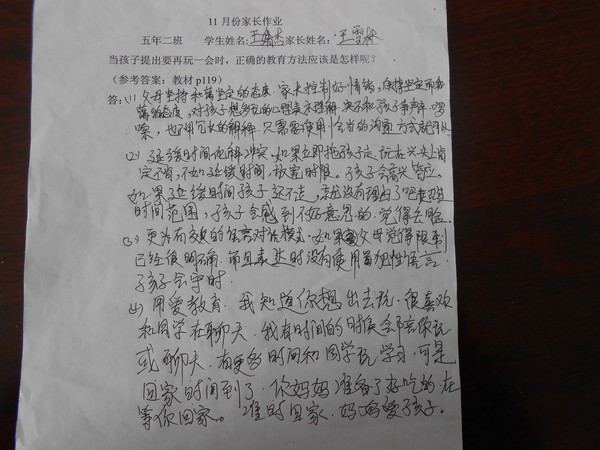 11 月份家长作业
五年二班 学生姓名:王 杰 家长姓名:王雪林
当孩子提出要再玩一会时，正确的教育方法应该是怎样呢？
(参考答案：教材 p119)
答:(1) 父母坚持和蔼坚定的态度 家长控制好情绪，保持坚定而和
蔼的态度，对孩子想多玩的心理表示理解 决不和孩子争辩
也不用冗长的解释 只需要使用恰当的沟通方式就可以
(2) 延缓时间化解冲突 如果立即拖孩子走 玩在兴头上肯
定不肯，不如延缓时间，放宽时限。孩子会高兴答应。
如果延缓时间孩子还不走，就没有理由了吧
时间范围，孩子会感到不好意思的 觉得丢脸。
(3) 更为有效的语言对话模式 如果父母觉得限制
已经很明确 而且表达时没有使用 性语言
孩子会守时
(4) 用爱教育 我知道你想出去玩 很喜欢
和同学在聊天 我有时间的时候会陪你玩
或聊天 有更多时间和同学玩 学习 可是
回家时间到了 你妈妈准备了好吃的 在
等你回家。 准时回家 妈妈爱孩子。